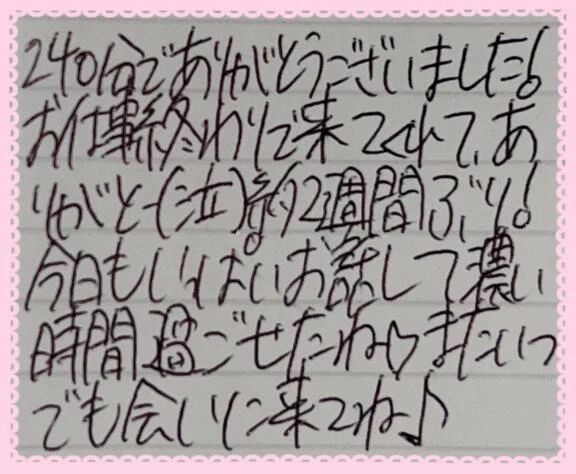 240分でありがとうございました!
お仕事終わりで来てくれて、あ
りがとー(泣)約2週間ぶり!
今日もいっぱいお話して濃い
時間過ごせたね♡またいつ
でも会いに来てね♪